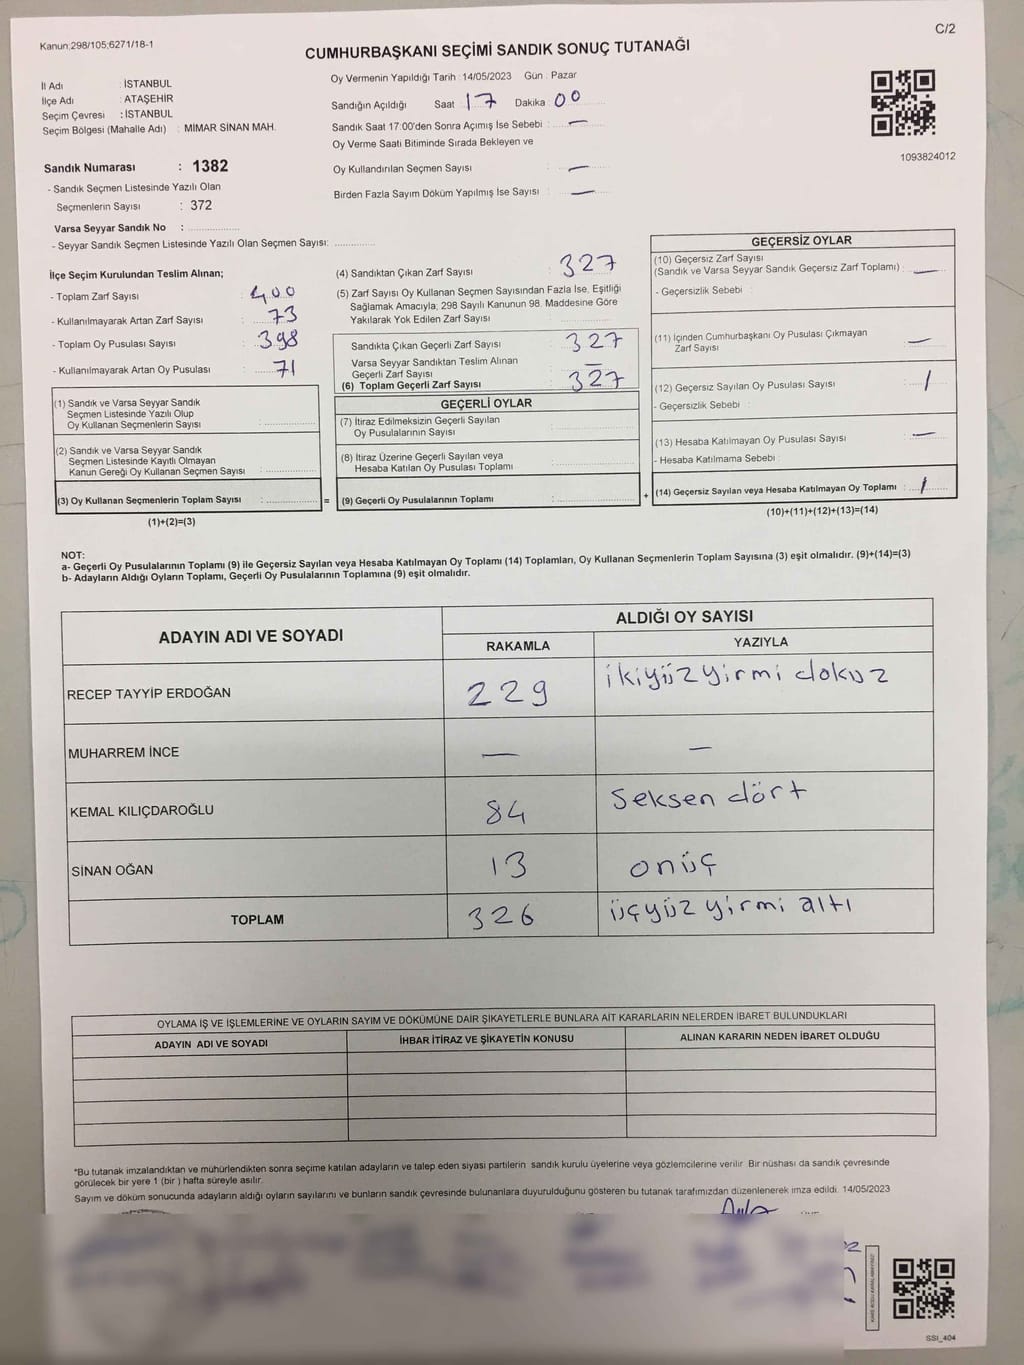 Kanun:298/105;6271/18-1
C/2
CUMHURBAŞKANI SEÇİMİ SANDIK SONUÇ TUTANAĞI
İl Adı : İSTANBUL
İlçe Adı : ATAŞEHİR
Seçim Çevresi : İSTANBUL
Seçim Bölgesi (Mahalle Adı) : MİMAR SİNAN MAH.
Sandık Numarası : 1382
- Sandık Seçmen Listesinde Yazılı Olan
Seçmenlerin Sayısı : 372
Varsa Seyyar Sandık No : ....................
- Seyyar Sandık Seçmen Listesinde Yazılı Olan Seçmen Sayısı: ...............
Oy Vermenin Yapıldığı Tarih : 14/05/2023 Gün : Pazar
Sandığın Açıldığı Saat : 17 Dakika : 00
Sandık Saat 17:00'den Sonra Açımış İse Sebebi : —
Oy Verme Saati Bitiminde Sırada Bekleyen ve
Oy Kullandırılan Seçmen Sayısı : —
Birden Fazla Sayım Döküm Yapılmış İse Sayısı : —
1093824012
İlçe Seçim Kurulundan Teslim Alınan;
- Toplam Zarf Sayısı : 400
- Kullanılmayarak Artan Zarf Sayısı : 73
- Toplam Oy Pusulası Sayısı : 398
- Kullanılmayarak Artan Oy Pusulası : 71
(1) Sandık ve Varsa Seyyar Sandık
Seçmen Listesinde Yazılı Olup
Oy Kullanan Seçmenlerin Sayısı :
(2) Sandık ve Varsa Seyyar Sandık
Seçmen Listesinde Kayıtlı Olmayan
Kanun Gereği Oy Kullanan Seçmen Sayısı :
(3) Oy Kullanan Seçmenlerin Toplam Sayısı :
(1)+(2)=(3)
(4) Sandıktan Çıkan Zarf Sayısı : 327
(5) Zarf Sayısı Oy Kullanan Seçmen Sayısından Fazla İse, Eşitliği
Sağlamak Amacıyla, 298 Sayılı Kanunun 98. Maddesine Göre
Yakılarak Yok Edilen Zarf Sayısı :
Sandıkta Çıkan Geçerli Zarf Sayısı : 327
Varsa Seyyar Sandıktan Teslim Alınan
Geçerli Zarf Sayısı : —
(6) Toplam Geçerli Zarf Sayısı : 327
GEÇERLİ OYLAR
(7) İtiraz Edilmeksizin Geçerli Sayılan
Oy Pusulalarının Sayısı :
(8) İtiraz Üzerine Geçerli Sayılan veya
Hesaba Katılan Oy Pusulası Toplamı :
= (9) Geçerli Oy Pusulalarının Toplamı :
GEÇERSİZ OYLAR
(10) Geçersiz Zarf Sayısı
(Sandık ve Varsa Seyyar Sandık Geçersiz Zarf Toplamı) : —
- Geçersizlik Sebebi :
(11) İçinden Cumhurbaşkanı Oy Pusulası Çıkmayan
Zarf Sayısı : —
(12) Geçersiz Sayılan Oy Pusulası Sayısı : 1
- Geçersizlik Sebebi :
(13) Hesaba Katılmayan Oy Pusulası Sayısı : —
- Hesaba Katılmama Sebebi :
+ (14) Geçersiz Sayılan veya Hesaba Katılmayan Oy Toplamı : 1
(10)+(11)+(12)+(13)=(14)
NOT:
a- Geçerli Oy Pusulalarının Toplamı (9) ile Geçersiz Sayılan veya Hesaba Katılmayan Oy Toplamı (14) Toplamları, Oy Kullanan Seçmenlerin Toplam Sayısına (3) eşit olmalıdır. (9)+(14)=(3)
b- Adayların Aldığı Oyların Toplamı, Geçerli Oy Pusulalarının Toplamına (9) eşit olmalıdır.
ADAYIN ADI VE SOYADI
ALDIĞI OY SAYISI
RAKAMLA YAZIYLA
RECEP TAYYİP ERDOĞAN 229 ikiyüzyirmi dokuz
MUHARREM İNCE — —
KEMAL KILIÇDAROĞLU 84 Seksen dört
SİNAN OĞAN 13 onüç
TOPLAM 326 üçyüz yirmi altı
OYLAMA İŞ VE İŞLEMLERİNE VE OYLARIN SAYIM VE DÖKÜMÜNE DAİR ŞİKAYETLERLE BUNLARA AİT KARARLARIN NELERDEN İBARET BULUNDUKLARI
ADAYIN ADI VE SOYADI İHBAR İTİRAZ VE ŞİKAYETİN KONUSU ALINAN KARARIN NEDEN İBARET OLDUĞU
*Bu tutanak imzalandıktan ve mühürlendikten sonra seçime katılan adayların ve talep eden siyasi partilerin sandık kurulu üyelerine veya gözlemcilerine verilir. Bir nüshası da sandık çevresinde
görülecek bir yere 1 (bir ) hafta süreyle asılır.
Sayım ve döküm sonucunda adayların aldığı oyların sayılarını ve bunların sandık çevresinde bulunanlara duyurulduğunu gösteren bu tutanak tarafımızdan düzenlenerek imza edildi. 14/05/2023
SSI_404